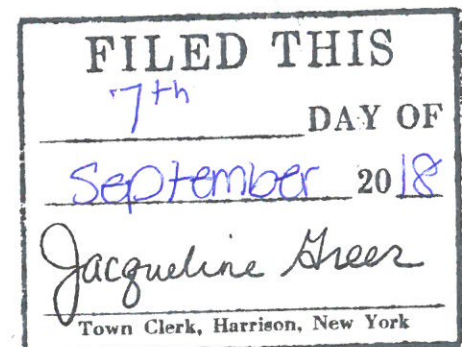 FILED THIS
7th DAY OF
September 2018
Jacqueline Greer
Town Clerk, Harrison, New York